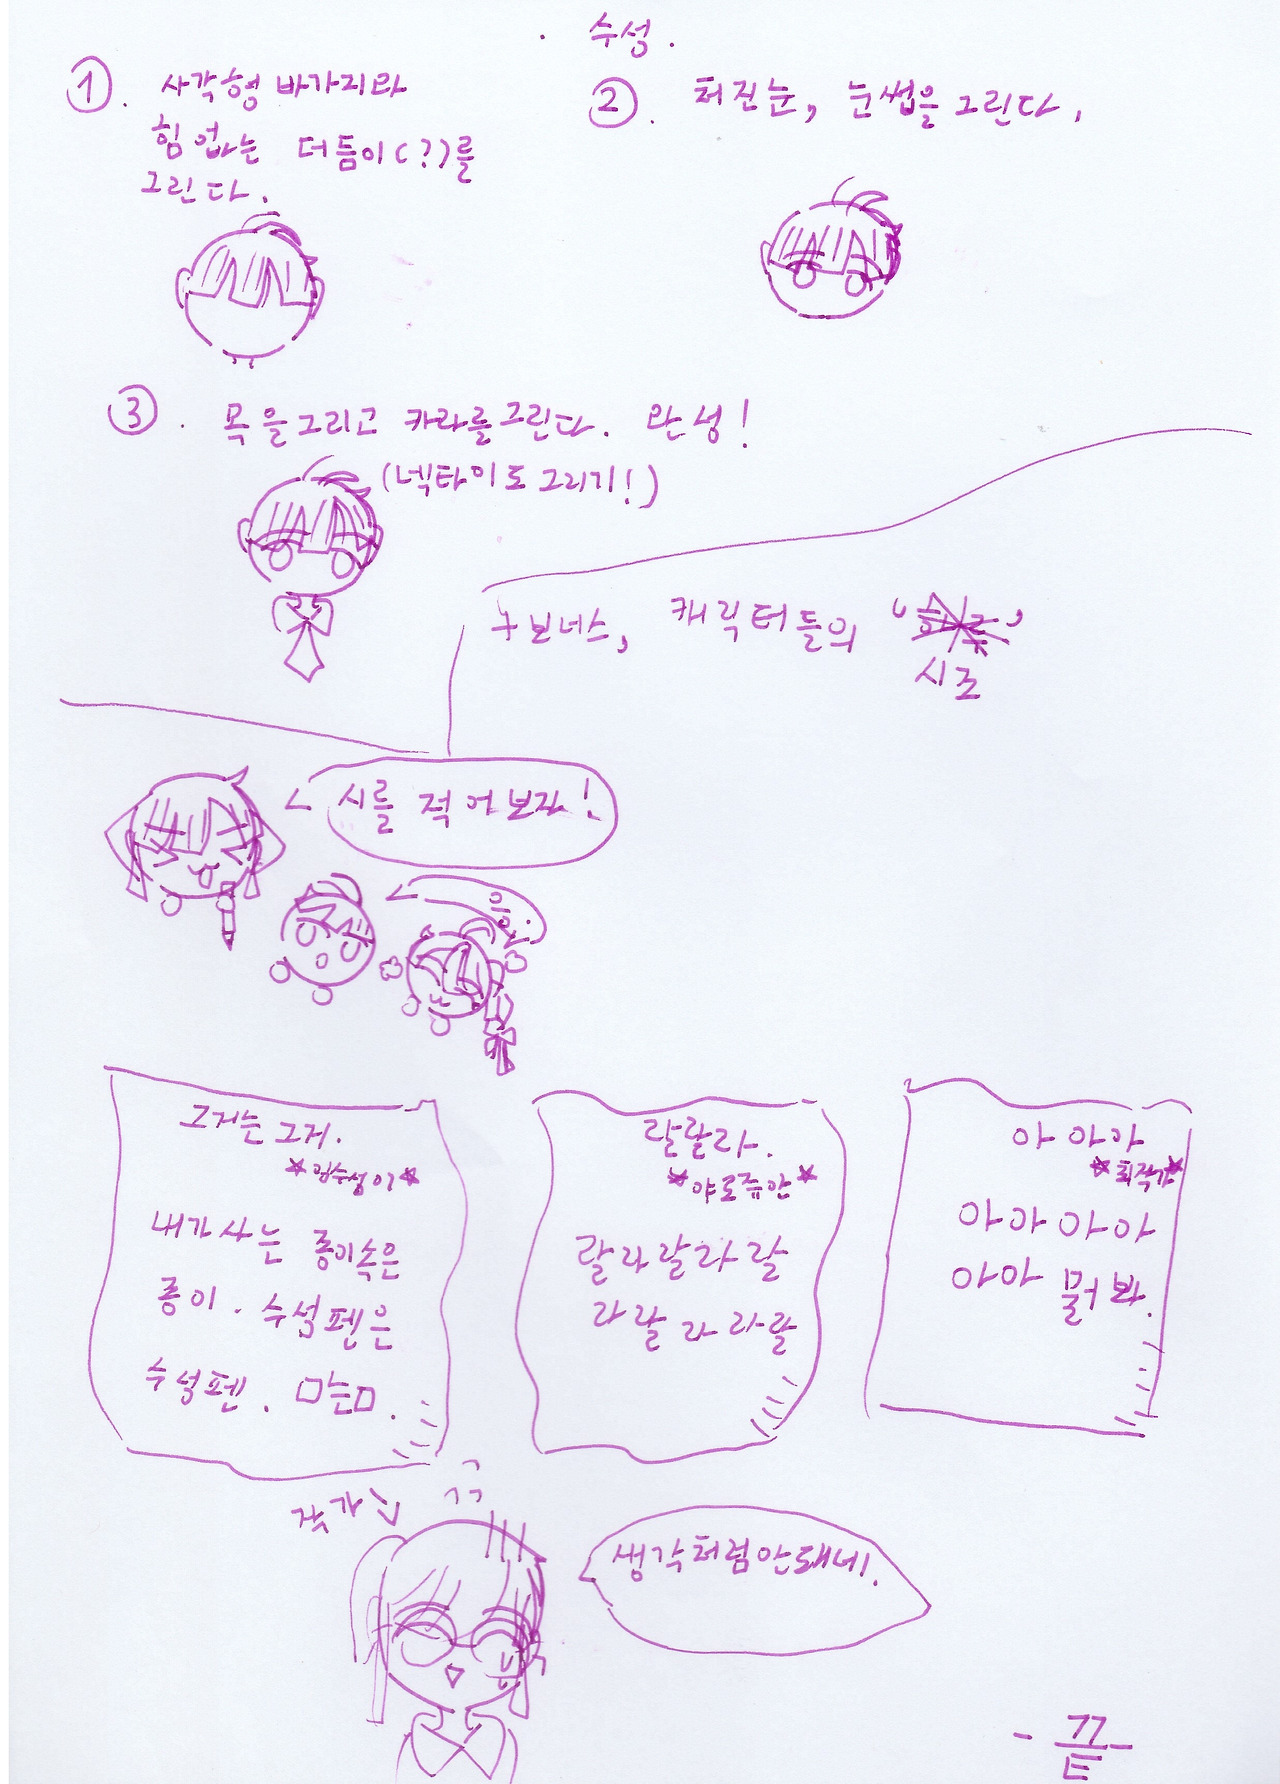 · 수성.
① . 사각형 바가지라
힘 없는 더듬이(?)를
그린다.
② . 처진눈, 눈썹을 그린다.
③ . 목을그리고 카라를그린다. 완성!
(넥타이도 그리기!)
+보너스, 캐릭터들의 ' '
시조
시를 적어보자!
응!
그거는 그거.
내가 사는 종이속은
종이. 수성펜은
수성펜. ㅁ는ㅁ.
랄랄라.
랄라랄라랄
라랄라라랄
아 아아
아아 아아
아아 뭘봐.
작가
ㄱㄱ
생각처럼안돼네.
- 끝 -